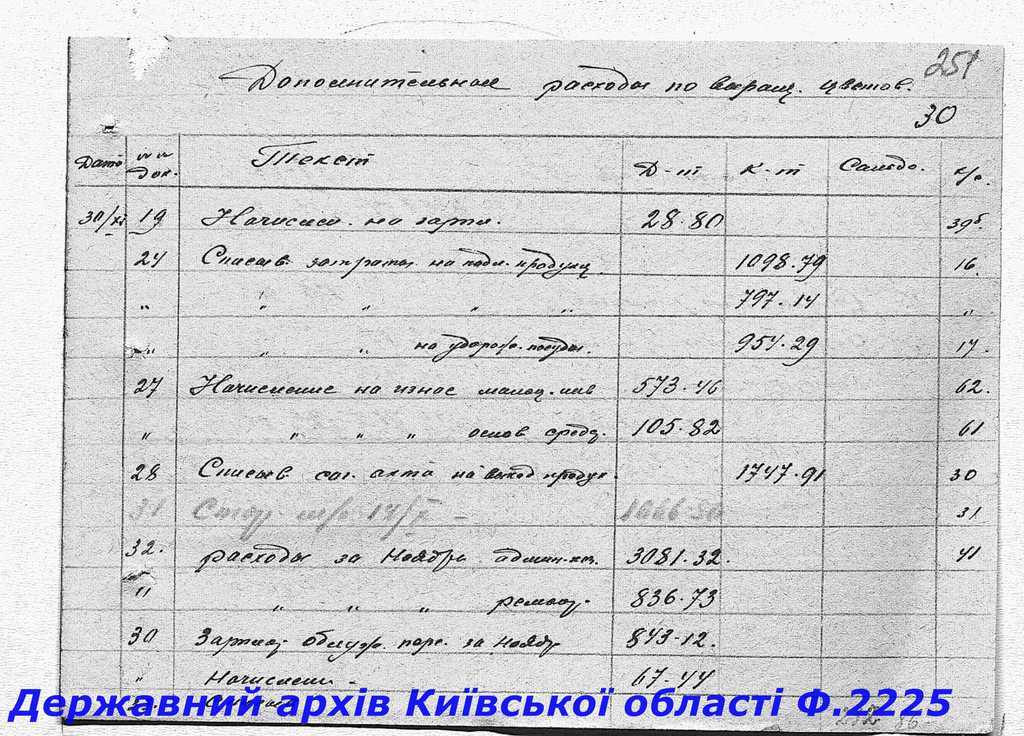 251
Дополнительная расходы по выращ. цветов.
30
Дата №№ док. Текст Д-т К-т Сальдо. к/с.
30/XI 19 Начислен. на зарпл. 28.80 39б.
24 Списыв. затраты на подл. продукц 1098.79 16
" " " " " 797.14 "
" " " на удорож. посуды. 954.29 17.
27 Начисление на износ малоц. инв 573.46 62.
" " " " основ средс. 105.82 61
28 Списыв сог. акта на выход продук. 1747.91 30
31 31
32. расходы за Ноябрь админ-хоз. 3081.32. 41
" " " " ремонт. 836.73
30 Зарплат обслуж. перс. за ноябр 843-12.
" Начислени - 67-44
Державний архів Київської області Ф.2225